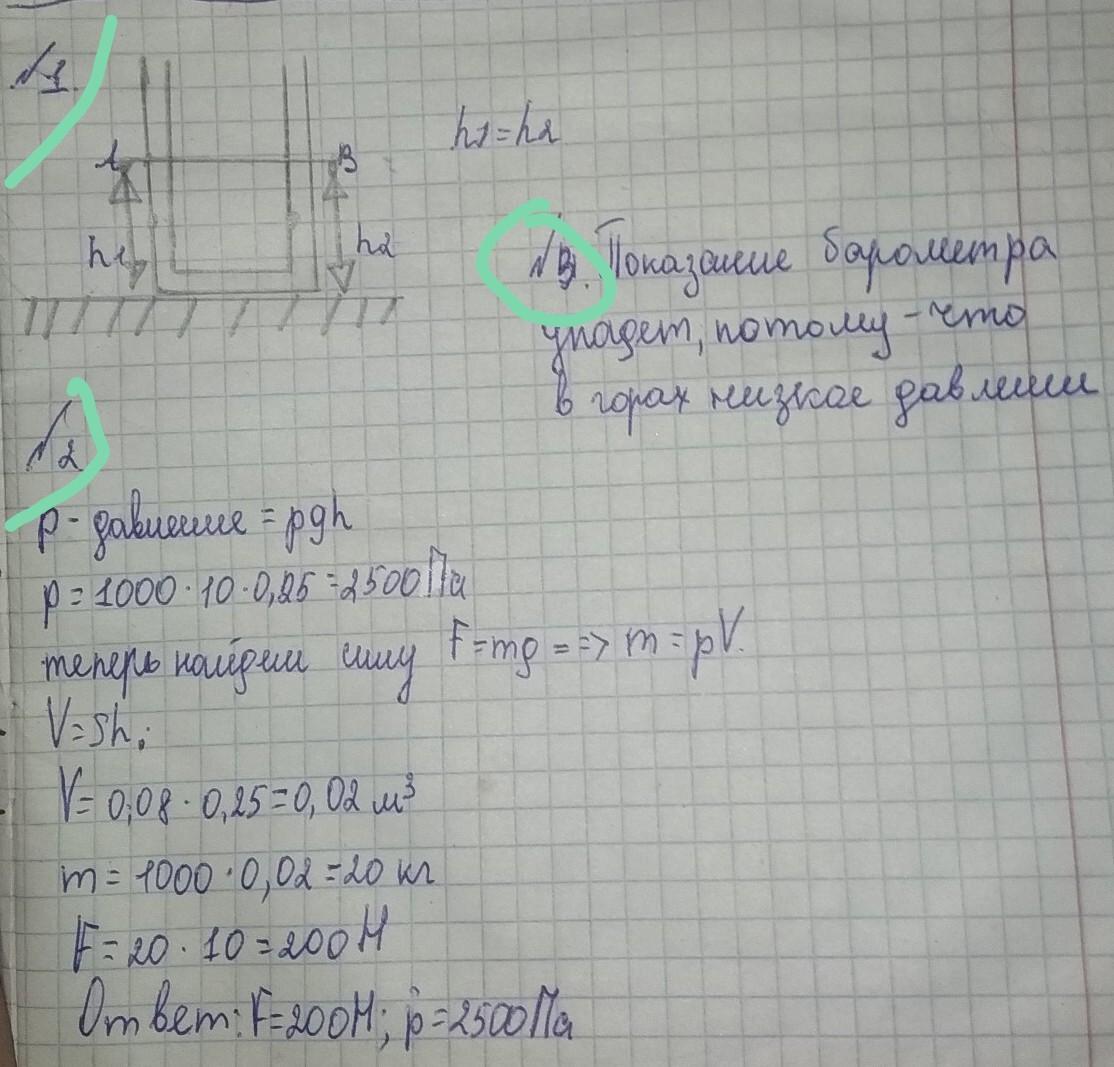 №1.
A
B
h1
h2
h1=h2
№3. Показание барометра
упадет, потому-что
в горах низкое давление
№2
p- давление = pgh
p=1000·10·0,25=2500Па
теперь найдем силу F=mg==> m=pV.
V=Sh;
V=0,08·0,25=0,02 м³
m=1000·0,02=20 кг
F=20·10=200Н
Ответ: F=200Н; p=2500Па